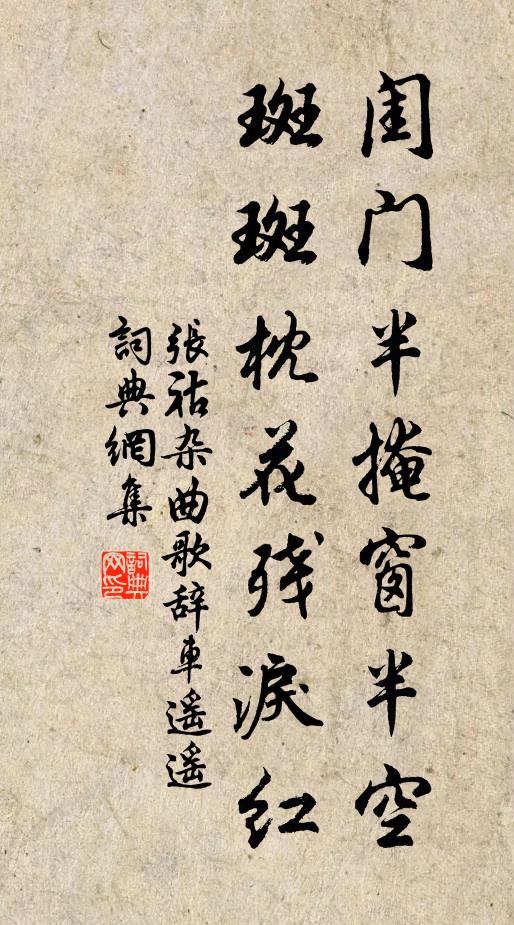 闺门半掩窗半空
斑斑枕花残淚红
張祜杂曲歌辞車遥遥
詞典網集
詞典网印